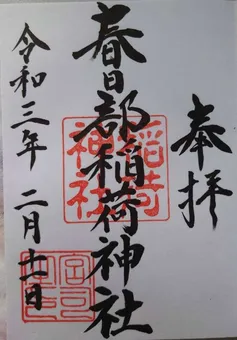 奉拝
春日部稲荷神社
稲荷
神社
令和三年 二月十一日